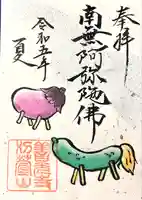 奉拝
南無阿弥陀佛
令和五年
夏